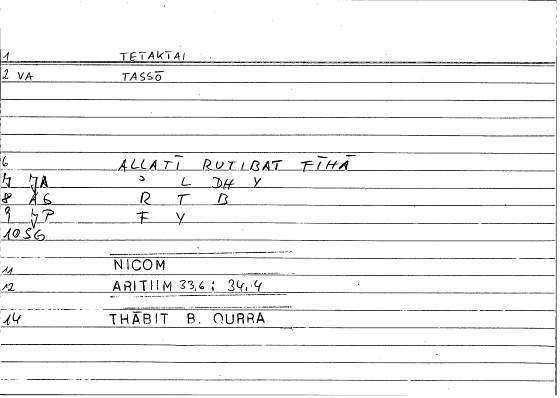 1 TETAKTAI
2 VA TASSŌ
6 ALLATĪ RUTIBAT FĪHĀ
7 JA ᵓ L DH Y
8 AG R T B
9 JP F Y
10 SG
11 NICOM
12 ARITIIM 33,6 ; 34,4
14 THĀBIT B. QURRA